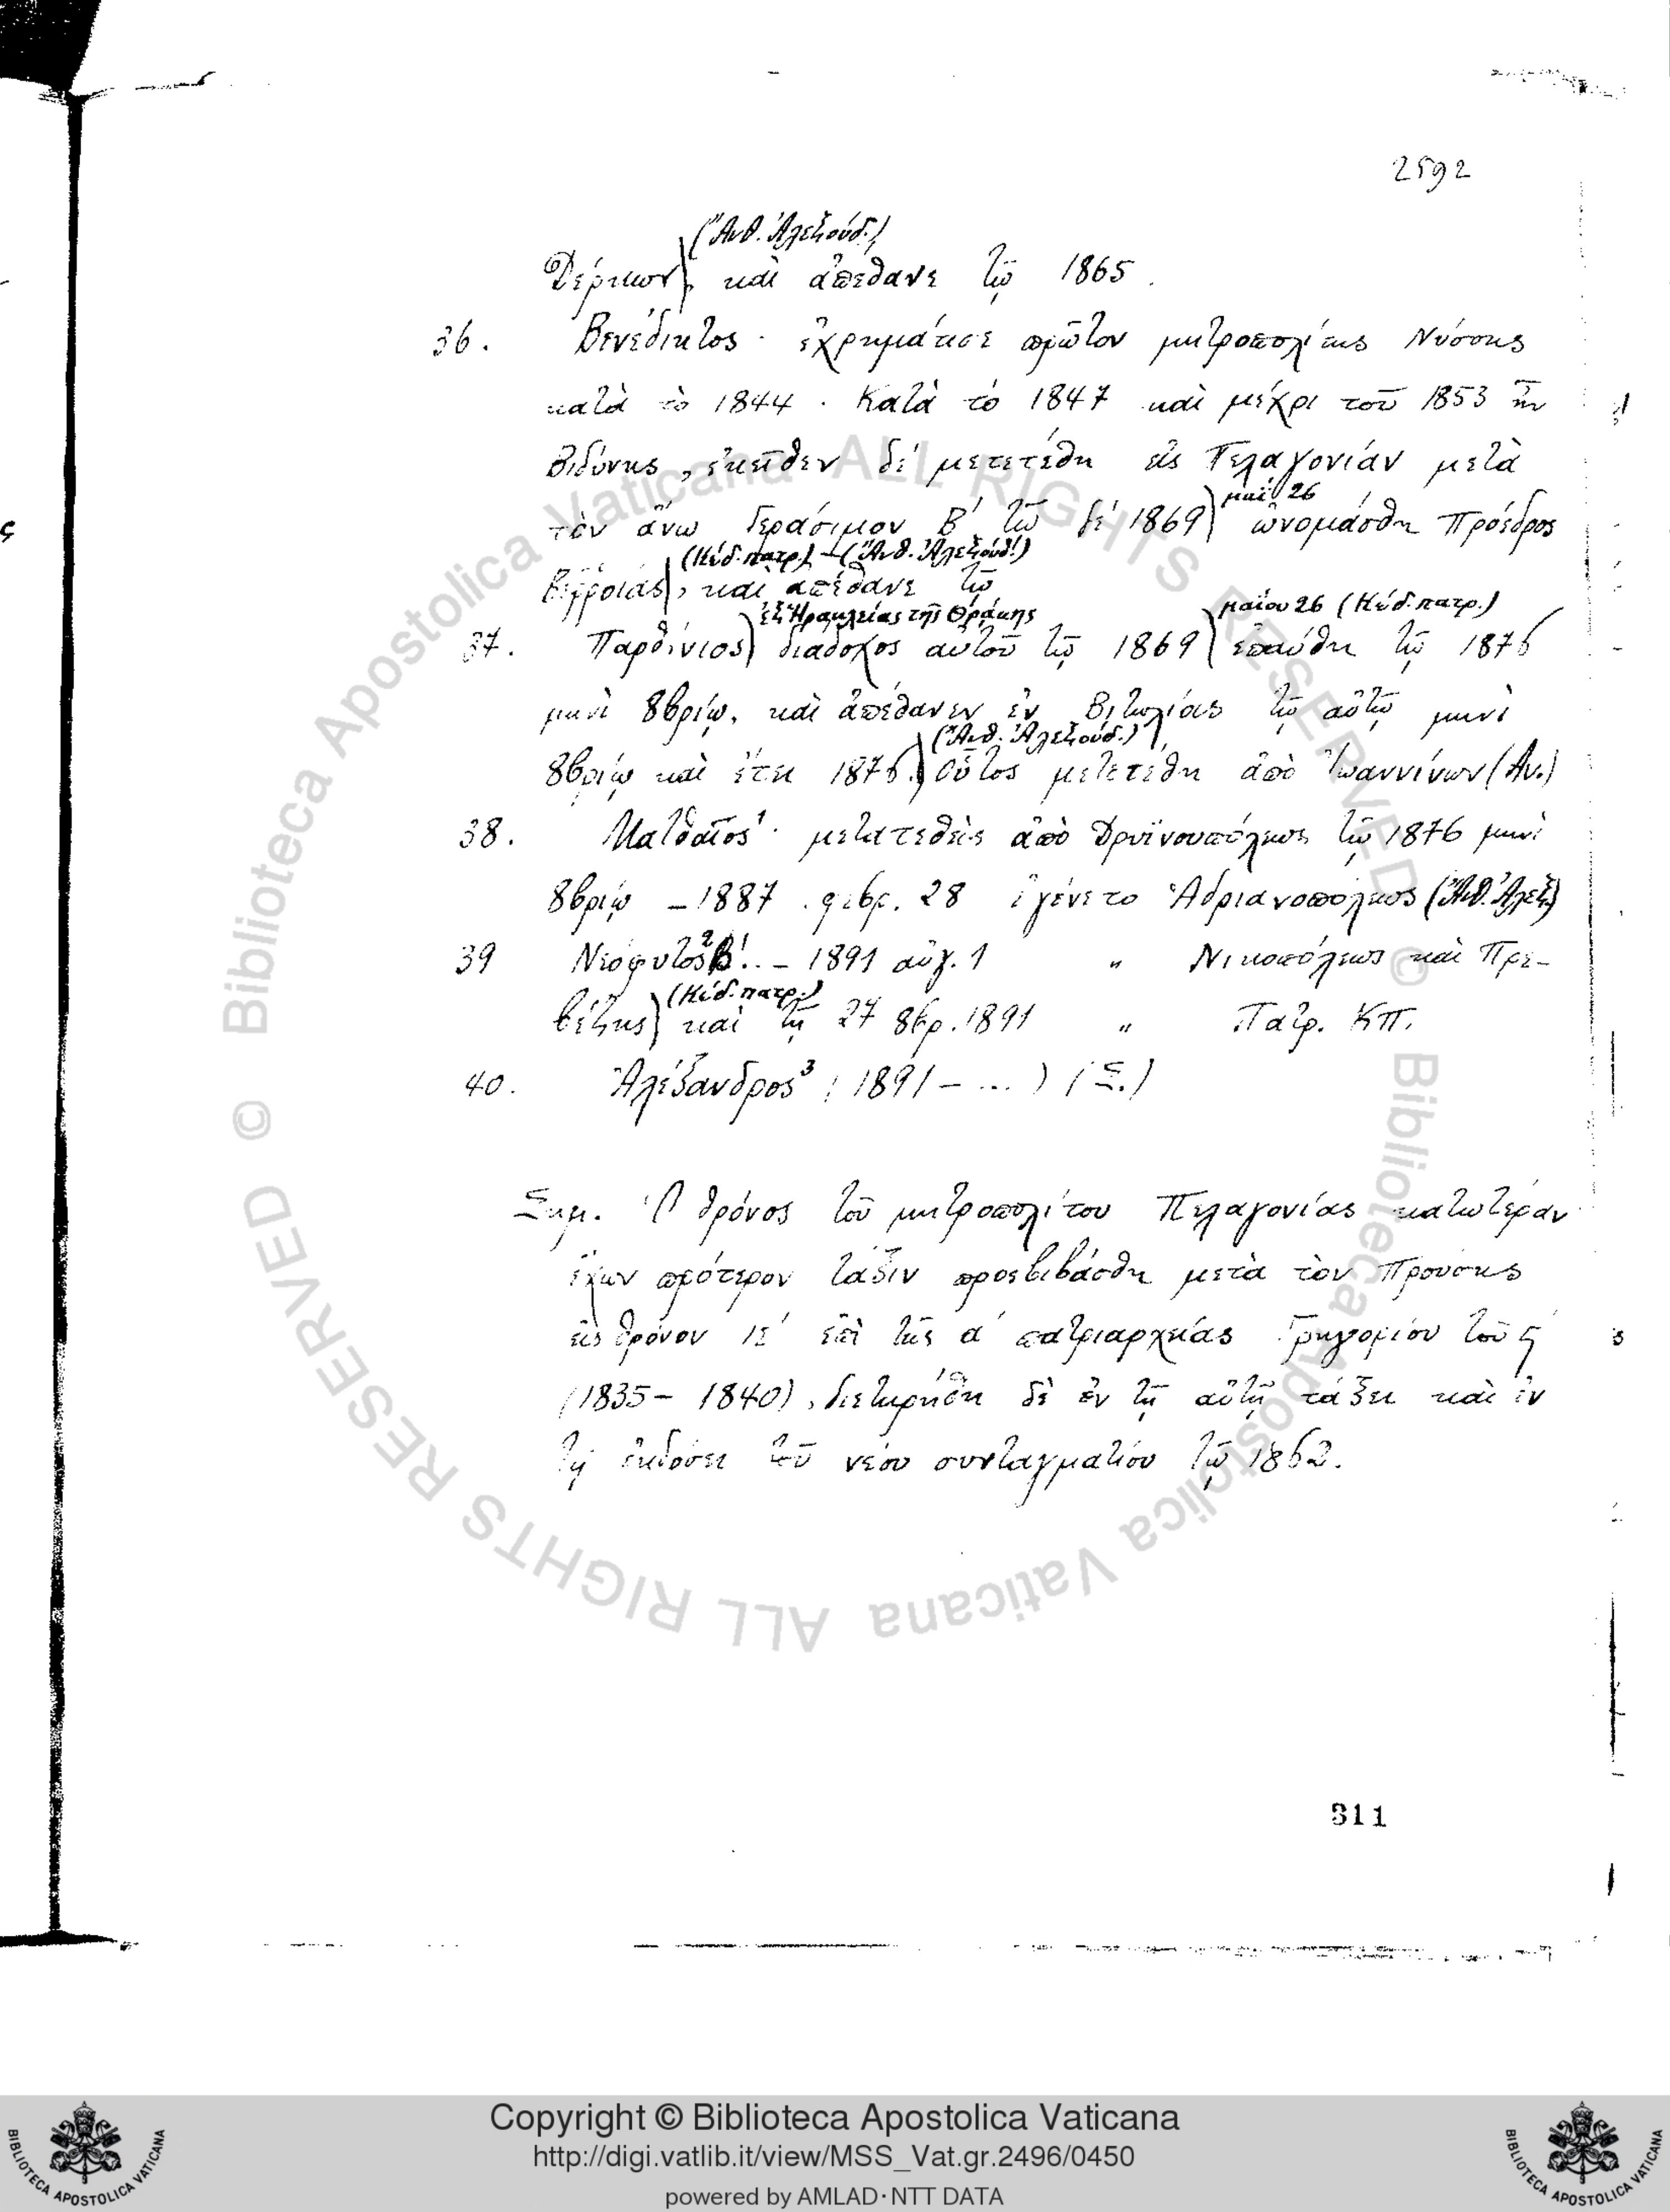 2592
(Ἀνθ. Ἀλεξούδ.)
Δέρκων, καὶ ἀπέθανε τῷ 1865.
36. Βενέδικτος· ἐχρημάτισε πρῶτον μητροπολίτης Νύσσης
κατὰ τὸ 1844. Κατὰ τὸ 1847 καὶ μέχρι τοῦ 1853 ἦν
Βιδύνης, ἐκεῖθεν δὲ μετετέθη εἰς Πελαγονίαν μετὰ
μαΐ 26
τὸν ἄνω Γεράσιμον Β΄ τῷ δὲ 1869 ὠνομάσθη Πρόεδρος
(Κώδ. πατρ.) – (Ἀνθ. Ἀλεξούδ.)
Βερροίας, καὶ ἀπέθανε τῷ
ἐξ Ἡρακλείας τῆς Θράκης μαΐου 26 (Κώδ. πατρ.)
37. Παρθένιος διάδοχος αὐτοῦ τῷ 1869 ἐπαύθη τῷ 1876
μηνὶ 8βρίῳ, καὶ ἀπέθανεν ἐν Βιτωλίοις τῷ αὐτῷ μηνὶ
(Ἀνθ. Ἀλεξούδ.)
8βρίῳ καὶ ἔτει 1876. Οὗτος μετετέθη ἀπὸ Ἰωαννίνων (Αν.)
38. Ματθαῖος¹· μετατεθεὶς ἀπὸ Δρυϊνουπόλεως τῷ 1876 μηνὶ
8βρίῳ – 1887 φεβρ. 28 ἐγένετο Ἀδριανοπόλεως (Ἀνθ. Ἀλεξ.)
39 Νεόφυτος² Β΄. – 1891 αὐγ. 1 〃 Νικοπόλεως καὶ Πρε-
(Κώδ. πατρ.)
βέζης καὶ τῇ 27 8βρ. 1891 〃 Πατρ. ΚΠ.
40. Ἀλέξανδρος³ (1891 – ...) (Ξ.)
Σημ. Ὁ θρόνος τοῦ μητροπολίτου Πελαγονίας κατωτέραν
ἔχων πρότερον τάξιν προεβιβάσθη μετὰ τὸν Προύσης
εἰς θρόνον ιε΄ ἐπὶ τῆς α΄ πατριαρχείας Γρηγορίου τοῦ ϛ΄
(1835 – 1840), διετηρήθη δὲ ἐν τῇ αὐτῇ τάξει καὶ ἐν
τῇ ἐκδόσει τοῦ νέου συνταγματίου τῷ 1862.
311
© Biblioteca Apostolica Vaticana ALL RIGHTS RESERVED © Biblioteca Apostolica Vaticana ALL RIGHTS RESERVED
Copyright © Biblioteca Apostolica Vaticana
http://digi.vatlib.it/view/MSS_Vat.gr.2496/0450
powered by AMLAD·NTT DATA
BIBLIOTECA APOSTOLICA VATICANA
BIBLIOTECA APOSTOLICA VATICANA